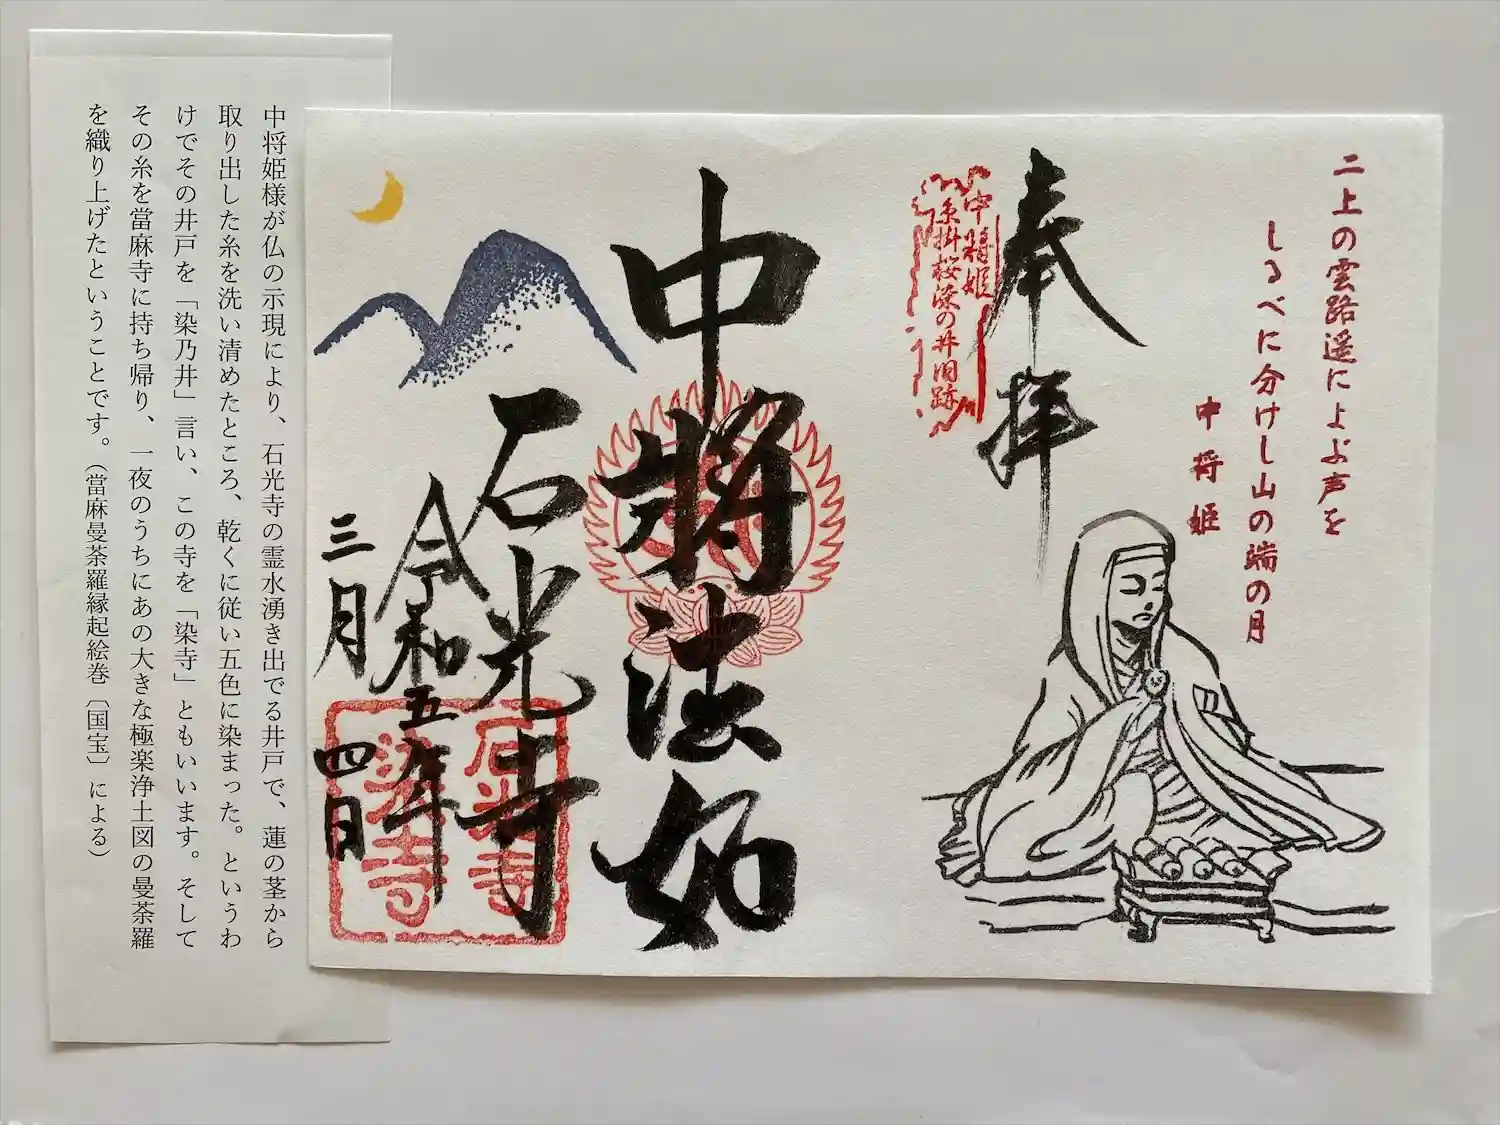 二上の雲路遥によぶ声を
しるべに分けし山の端の月
中将姫
奉拝
中将姫
糸掛桜染の井旧跡
中将法如
石光寺
令和五年
三月四日
石光寺
染寺
中将姫様が仏の示現により、石光寺の霊水湧き出でる井戸で、蓮の茎から
取り出した糸を洗い清めたところ、乾くに従い五色に染まった。というわ
けでその井戸を「染乃井」言い、この寺を「染寺」ともいいます。そして
その糸を當麻寺に持ち帰り、一夜のうちにあの大きな極楽浄土図の曼荼羅
を織り上げたということです。（當麻曼荼羅縁起絵巻〔国宝〕による）